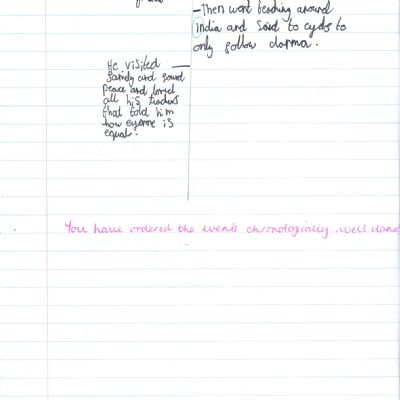 -Then went teaching around
India and said to cycle to
only follow darma.
He visited
family and found
peace and loved
all his teachers
that told him
how everone is
equal.
You have ordered the events chronologially, well done